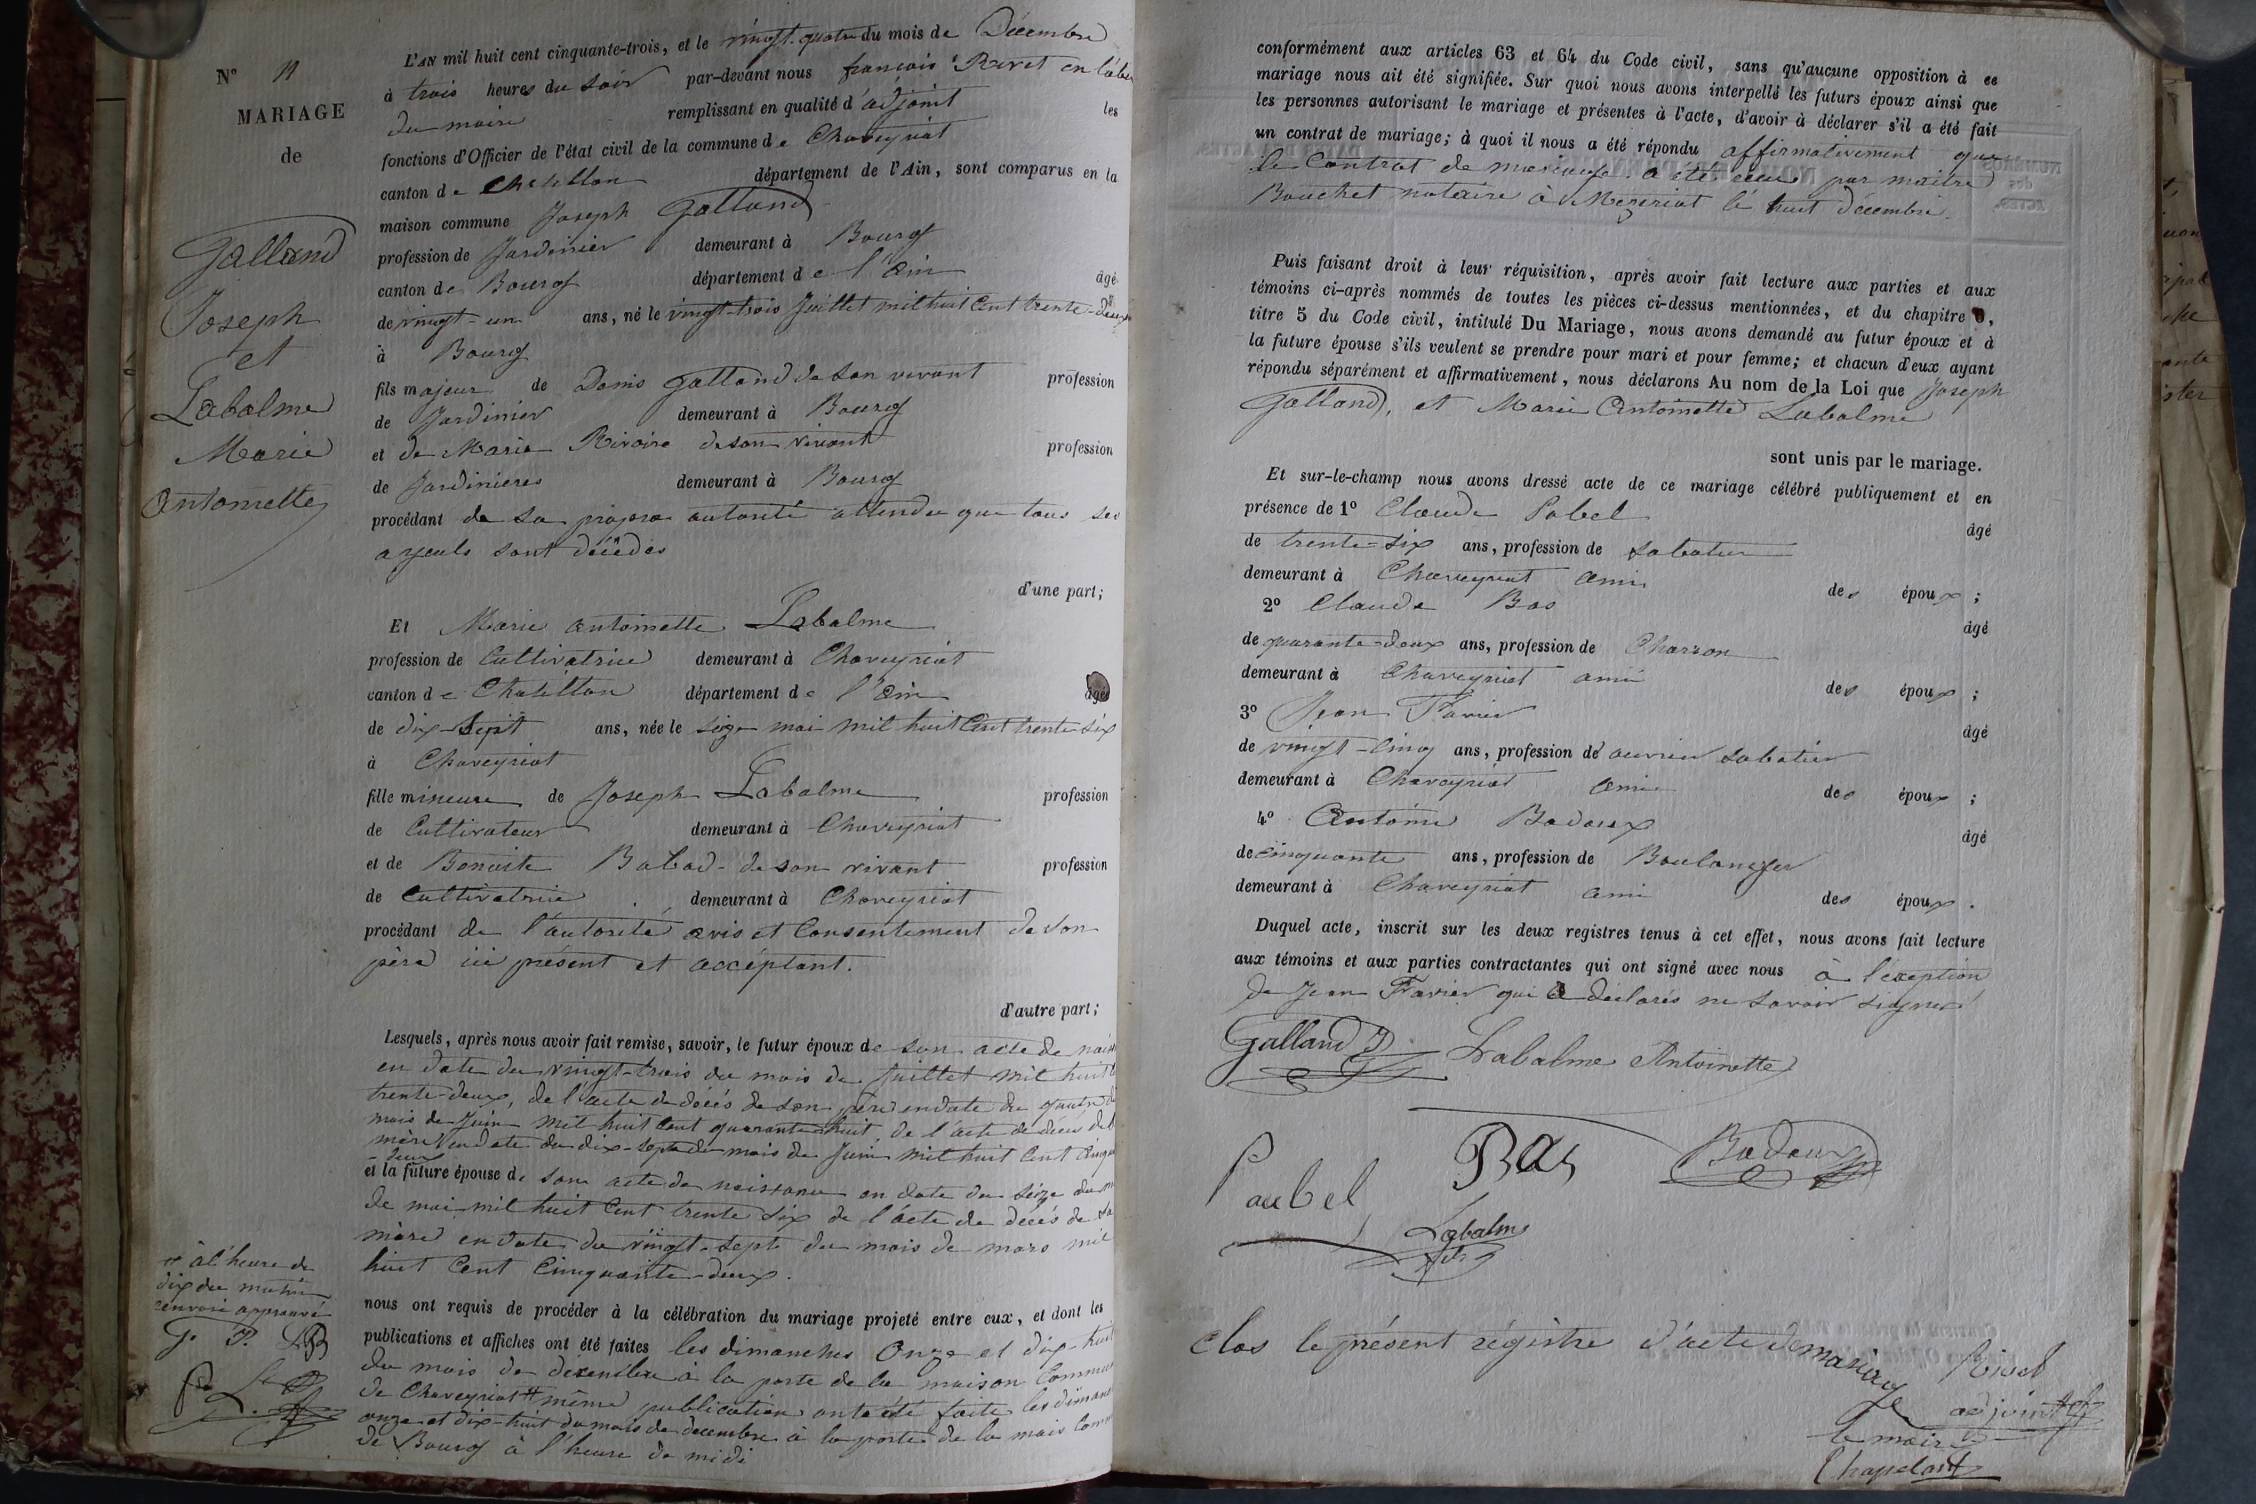 N° 11
MARIAGE
de
Galland
Joseph
et
Labalme
Marie
Antoinette
L'AN mil huit cent cinquante-trois, et le vingt-quatre du mois de Décembre
à trois heures du soir par-devant nous françois Rivet en l'abs
du maire remplissant en qualité d'adjoint les
fonctions d'Officier de l'état civil de la commune de Chaveyriat
canton de Chatillon département de l'Ain, sont comparus en la
maison commune Joseph Galland
profession de Jardinier demeurant à Bourg
canton de Bourg département de l'Ain âgé
de vingt-un ans, né le vingt-trois Juillet mil huit Cent trente-deux
à Bourg
fils majeur de Denis Galland de son vivant profession
de Jardinier demeurant à Bourg
et de Marie Rivoire de son vivant profession
de Jardinieres demeurant à Bourg
procédant de sa propre autorité attendu que tous ses
ayeuls sont décédés
d'une part;
Et Marie Antoinette Labalme
profession de Cultivatrice demeurant à Chaveyriat
canton de Chatillon département de l'Ain âgée
de dix-Sept ans, née le Seize mai mil huit Cent trente-six
à Chaveyriat
fille mineure de Joseph Labalme profession
de Cultivateur demeurant à Chaveyriat
et de Benoite Babad de son vivant profession
de Cultivatrice demeurant à Chaveyriat
procédant de l'autorité avis et Consentement de son
père ici présent et accéptant.
d'autre part;
Lesquels, après nous avoir fait remise, savoir, le futur époux de son acte de naiss
en date du vingt-trois du mois de Juillet mil huit
trente-deux, de l'acte de décés de son père en date du quatre d
mois de Juin mil huit Cent quarante huit de l'acte de décés de
mère en date du dix-sept du mois de Juin mil huit Cent Cinqu
-deux
et la future épouse de son acte de naissance en date du Seize du
de mai mil huit Cent trente Six de l'acte de décés de sa
mère en date du vingt-sept du mois de mars mil
huit Cent Cinquante-deux.
nous ont requis de procéder à la célébration du mariage projeté entre eux, et dont les
publications et affiches ont été faites les dimanches Onze et dix-huit
du mois de decembre à la porte de la maison Commun
de Chaveyriat # même publication ont été faite les dimanc
onze et dix-huit du mois de decembre à la porte de la mais Com
de Bourg à l'heure de midi
# à l'heure de
dix du matin
renvoi approuvé
conformément aux articles 63 et 64 du Code civil, sans qu'aucune opposition à ce
mariage nous ait été signifiée. Sur quoi nous avons interpellé les futurs époux ainsi que
les personnes autorisant le mariage et présentes à l'acte, d'avoir à déclarer s'il a été fait
un contrat de mariage; à quoi il nous a été répondu affirmativement que
le Contrat de mariage a été recu par maitre
Bouchet notaire à Mezeriat le huit décembre.
Puis faisant droit à leur réquisition, après avoir fait lecture aux parties et aux
témoins ci-après nommés de toutes les pièces ci-dessus mentionnées, et du chapitre 6,
titre 5 du Code civil, intitulé Du Mariage, nous avons demandé au futur époux et à
la future épouse s'ils veulent se prendre pour mari et pour femme; et chacun d'eux ayant
répondu séparément et affirmativement, nous déclarons Au nom de la Loi que Joseph
Galland, et Marie Antoinette Labalme
sont unis par le mariage.
Et sur-le-champ nous avons dressé acte de ce mariage célébré publiquement et en
présence de 1° Claude Pobel âgé
de trente-six ans, profession de sabotier
demeurant à Chaveyriat ami des époux ;
2° Claude Bas âgé
de quarante-deux ans, profession de Charron
demeurant à Chaveyriat ami des époux ;
3° Jean Favier âgé
de vingt-Cinq ans, profession d'ouvrier sabotier
demeurant à Chaveyriat ami des époux ;
4° Antoine Badoux âgé
de cinquante ans, profession de Boulanger
demeurant à Chaveyriat ami des époux .
Duquel acte, inscrit sur les deux registres tenus à cet effet, nous avons fait lecture
aux témoins et aux parties contractantes qui ont signé avec nous à l'éxeption
de Jean Favier qui a déclarés ne savoir signer
Galland J Labalme Antoinette
Paubel Bas Badoux
Labalme
clos le présent régistre d'acte de mariage Rivet
adjoint
le maire
Chapeland